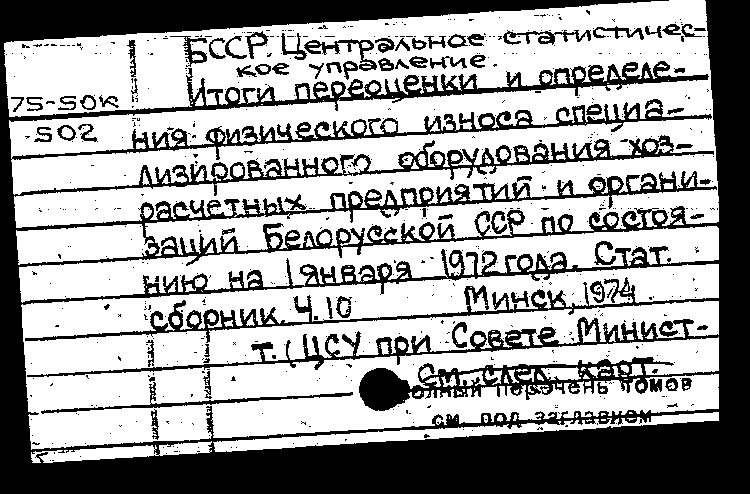 БССР. Центральное статистичес-
кое управление.
75-50к
502
Итоги переоценки и определе-
ния физического износа специа-
лизированного оборудования хоз-
расчетных предприятий и органи-
заций Белорусской ССР по состоя-
нию на 1 января 1972 года. Стат.
сборник. Ч. 10 Минск, 1974
т. (ЦСУ при Совете Минист-
См. след. карт.
полный перечень томов
см. под заглавием